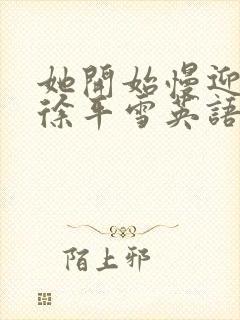 她開始慢迎
徐平雪英語
陌上邪